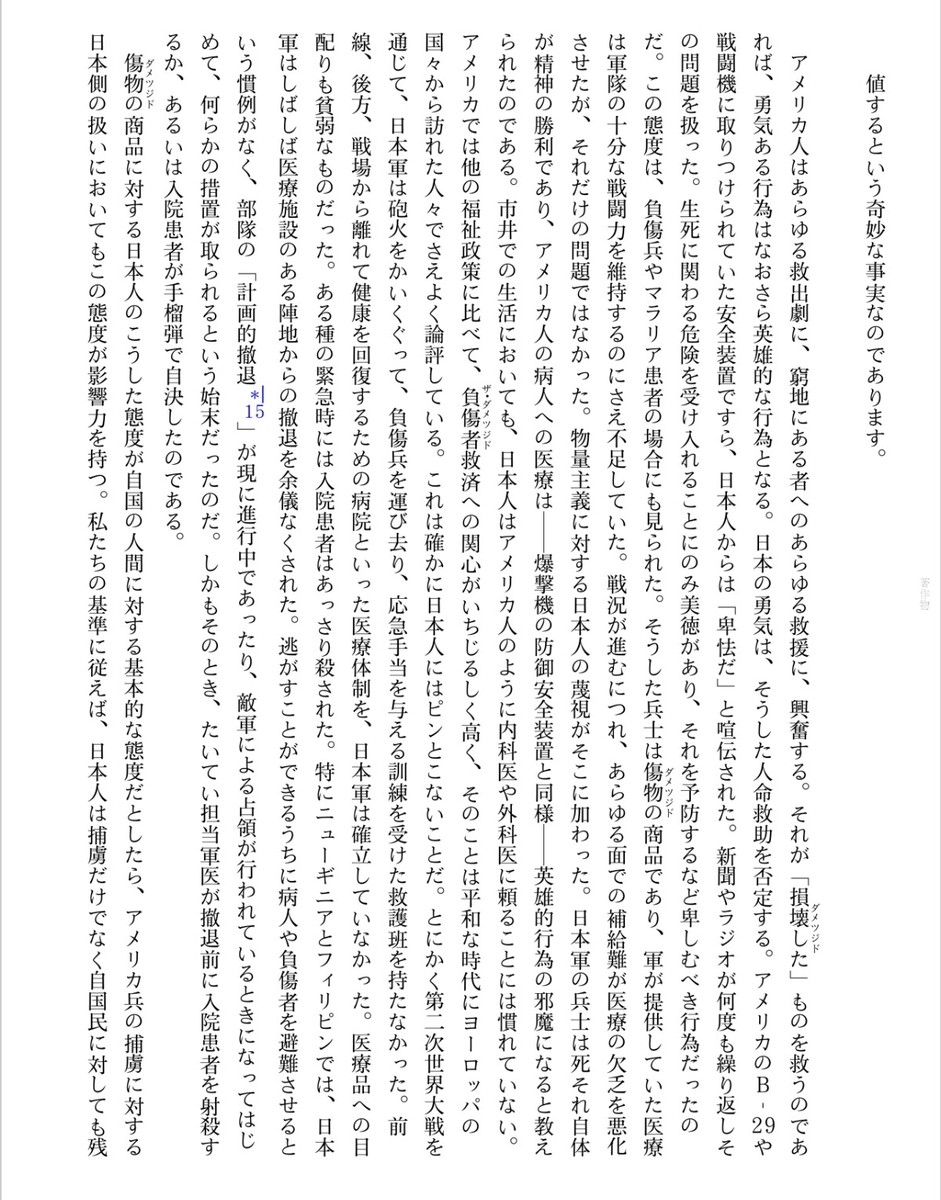 値するという奇妙な事実なのであります。
アメリカ人はあらゆる救出劇に、窮地にある者へのあらゆる救援に、興奮する。それが「損壊した」ものを救うのであ
ダメツジド
れば、勇気ある行為はなおさら英雄的な行為となる。日本の勇気は、そうした人命救助を否定する。アメリカのB-29や
戦闘機に取りつけられていた安全装置ですら、日本人からは「卑怯だ」と喧伝された。新聞やラジオが何度も繰り返しそ
の問題を扱った。生死に関わる危険を受け入れることにのみ美徳があり、それを予防するなど卑しむべき行為だったの
だ。この態度は、負傷兵やマラリア患者の場合にも見られた。そうした兵士は傷物の商品であり、軍が提供していた医療
ダメツジド
は軍隊の十分な戦闘力を維持するのにさえ不足していた。戦況が進むにつれ、あらゆる面での補給難が医療の欠乏を悪化
させたが、それだけの問題ではなかった。物量主義に対する日本人の蔑視がそこに加わった。日本軍の兵士は死それ自体
が精神の勝利であり、アメリカ人の病人への医療は――爆撃機の防御安全装置と同様――英雄的行為の邪魔になると教え
られたのである。市井での生活においても、日本人はアメリカ人のように内科医や外科医に頼ることには慣れていない。
アメリカでは他の福祉政策に比べて、負傷者救済への関心がいちじるしく高く、そのことは平和な時代にヨーロッパの
ザ・ダメツジド
国々から訪れた人々でさえよく論評している。これは確かに日本人にはピンとこないことだ。とにかく第二次世界大戦を
通じて、日本軍は砲火をかいくぐって、負傷兵を運び去り、応急手当を与える訓練を受けた救護班を持たなかった。前
線、後方、戦場から離れて健康を回復するための病院といった医療体制を、日本軍は確立していなかった。医療品への目
配りも貧弱なものだった。ある種の緊急時には入院患者はあっさり殺された。特にニューギニアとフィリピンでは、日本
軍はしばしば医療施設のある陣地からの撤退を余儀なくされた。逃がすことができるうちに病人や負傷者を避難させると
いう慣例がなく、部隊の「計画的撤退*15」が現に進行中であったり、敵軍による占領が行われているときになってはじ
めて、何らかの措置が取られるという始末だったのだ。しかもそのとき、たいてい担当軍医が撤退前に入院患者を射殺す
るか、あるいは入院患者が手榴弾で自決したのである。
傷物の商品に対する日本人のこうした態度が自国の人間に対する基本的な態度だとしたら、アメリカ兵の捕虜に対する
ダメツジド
日本側の扱いにおいてもこの態度が影響力を持つ。私たちの基準に従えば、日本人は捕虜だけでなく自国民に対しても残
著作物